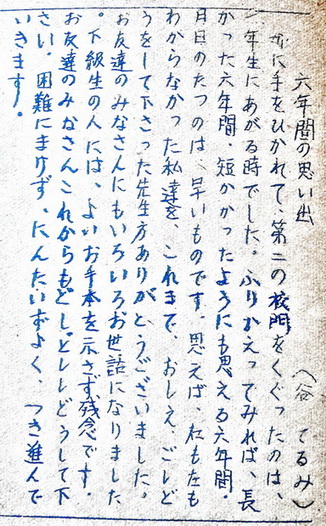 六年間の思い出
（谷 てるみ）
母に手をひかれて、第二の校門をくぐったのは、
一年生にあがる時でした。ふりかえってみれば、長
かった六年間、短かかったようにも思える六年間。
月日のたつのは、早いものです。思えば、右も左も
わからなかった私達を、これまで、おしえ、ごしど
うをして下さった先生方ありがとうございました。
お友達のみなさんにもいろいろお世話になりました
。下級生の人には、よいお手本を示さず残念です。
お友達のみなさんこれからもどしどしどうして下
さい。困難にまけず、にんたいずよく、つき進んで
いきます。